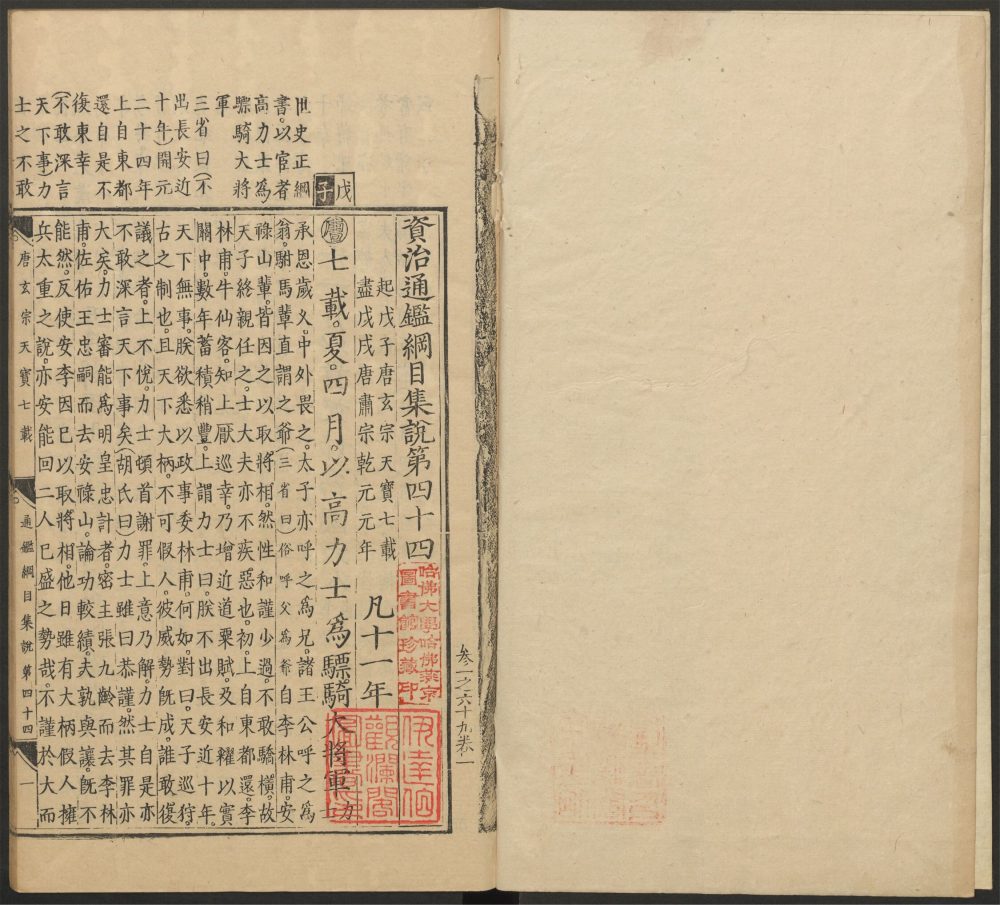 叁一之六十九卷一
資治通鑑綱目集說第四十四
哈佛大學哈佛燕京
圖書館珍藏印
起戊子唐玄宗天寶七載
盡戊戌唐肅宗乾元元年 凡十一年
伊達伯
觀瀾閣
圖書印
戊子
唐七載。夏。四月。以高力士爲驃騎大將軍 力士
承恩歲久。中外畏之。太子亦呼之爲兄。諸王公呼之爲
翁。駙馬輩直謂之爺(三省曰)俗呼父爲爺自李林甫。安
祿山輩。皆因之以取將相。然性和謹少過。不敢驕橫。故
天子終親任之。士大夫亦不疾惡也。初。上自東都還。李
林甫。牛仙客。知上厭巡幸。乃增近道粟賦。及和糴以實
關中。數年蓄積稍豐。上謂力士曰。朕不出長安近十年。
天下無事。朕欲悉以政事委林甫。何如。對曰。天子巡狩。
古之制也。且天下大柄。不可假人。彼威勢旣成。誰敢復
議之者。上不悅。力士頓首謝罪。上意乃解。力士自是亦
不敢深言天下事矣(胡氏曰)力士雖曰恭謹。然其罪亦
大矣。力士審能爲明皇忠計者。密主張九齡而去李林
甫。佐佑王忠嗣而去安祿山。論功較績。夫孰與讓。旣不
能然。反使安李因已以取將相。他日雖有大柄假人擁
兵太重之說。亦安能回二人已盛之勢哉。不謹於大而
世史正綱
書。以宦者
高力士爲
驃騎大將
軍
三省曰(不
出長安近
十年)開元
二十四年
上自東都
還自是不
復東幸
(不敢深言
天下事)力
士之不敢
唐玄宗天寶七載
通鑑綱目集說第四十四
一